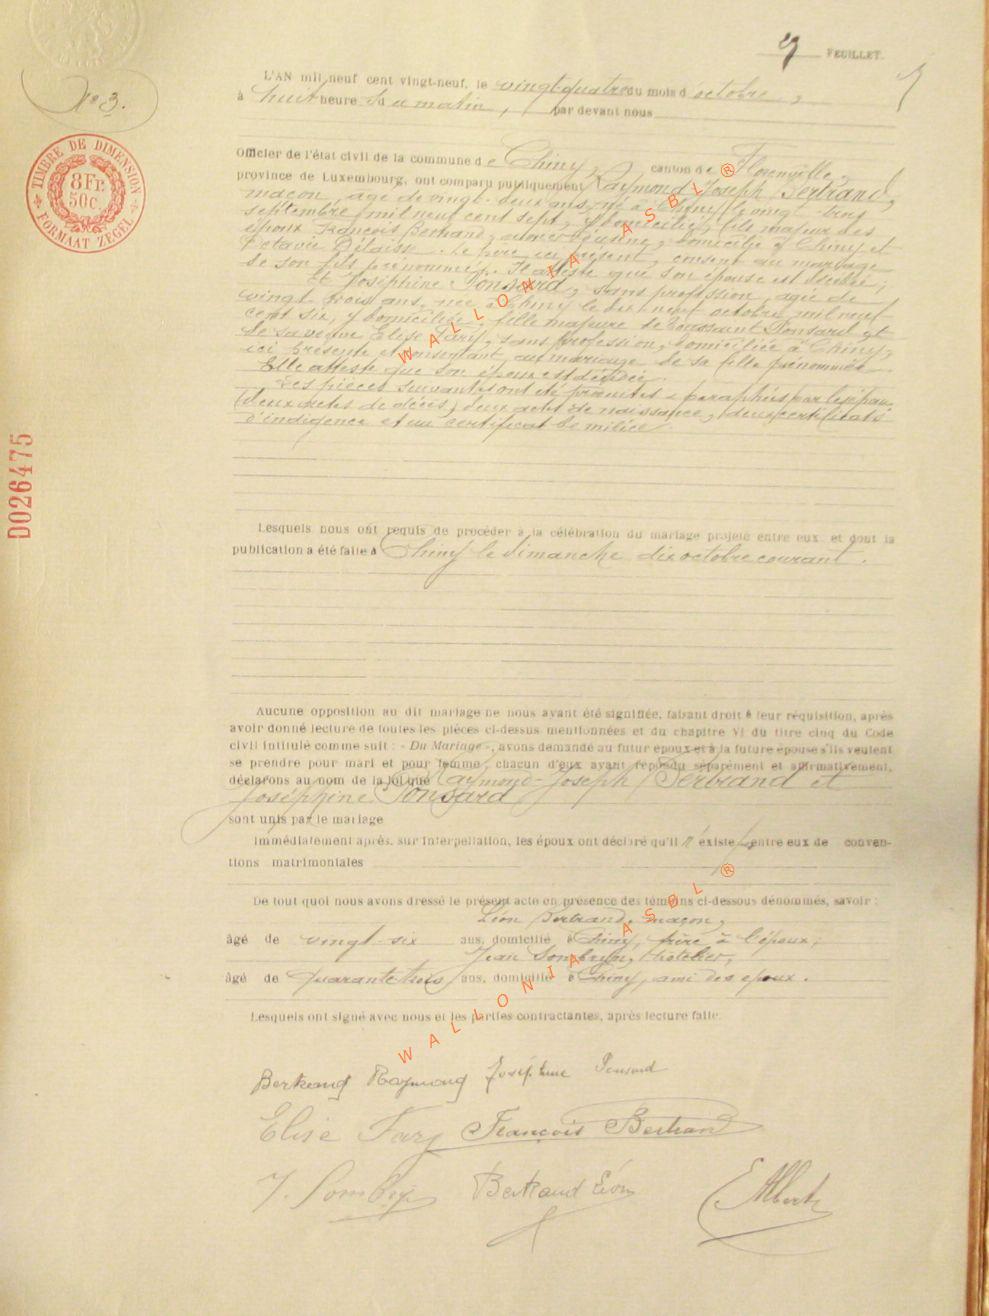 29 FEUILLET.
No 3.
L'AN mil neuf cent vingt-neuf, le vingt quatre du mois d octobre,
à huit heure s du matin, par devant nous
TIMBRE DE DIMENSION
8Fr.
50c.
FORMAAT ZEGEL
Officier de l'état civil de la commune de Chiny, canton de Florenville,
province de Luxembourg, ont comparu publiquement Raymond-Joseph Bertrand,
maçon, âgé de vingt-deux ans, né à Chiny le vingt trois
septembre mil neuf cent sept, y domicilié, fils majeur des
époux François Bertrand, domicilié à Chiny et
Octavie . Le père ici présent, consent au mariage
de son fils prénommé. Il atteste que son épouse est décédée,
Et Joséphine Ponsard, sans profession, âgée de
vingt trois ans, née à Chiny le dix neuf octobre mil neuf
cent six, y domiciliée, fille majeure de Toussaint Ponsard et
de sa veuve Elise Fary, sans profession, domiciliée à Chiny,
ici présente et consentant au mariage de sa fille prénommée.
Elle atteste que son époux est décédé.
Les pièces suivantes ont été produites et paraphées par les époux
(deux actes de décès, deux actes de naissance, deux certificats
d'indigence et un certificat de milice.
D026475
Lesquels nous ont requis de procéder à la célébration du mariage projeté entre eux et dont la
publication a été faite à Chiny le dimanche dix octobre courant.
Aucune opposition au dit mariage ne nous ayant été signifiée, faisant droit à leur réquisition, après
avoir donné lecture de toutes les pièces ci-dessus mentionnées et du chapitre VI du titre cinq du Code
civil intitulé comme suit : « Du Mariage », avons demandé au futur époux et à la future épouse s'ils veulent
se prendre pour mari et pour femme, chacun d'eux ayant répondu séparément et affirmativement,
déclarons au nom de la loi que Raymond-Joseph Bertrand et
Joséphine Ponsard
sont unis par le mariage
Immédiatement après, sur interpellation, les époux ont déclaré qu'il n'existe entre eux de conven-
tions matrimoniales
De tout quoi nous avons dressé le présent acte en présence des témoins ci-dessous dénommés, savoir :
Léon Bertrand, maçon,
âgé de vingt-six ans, domicilié à Chiny, frère à l'époux,
Jean , hôtelier,
âgé de quarante trois ans, domicilié à Chiny, ami des époux.
Lesquels ont signé avec nous et les parties contractantes, après lecture faite.
Bertrand Raymond Joséphine Ponsard
Elise Fary François Bertrand
J.
Bertrand Léon
Albert
WALLONIA ASBL ®
WALLONIA ASBL ®